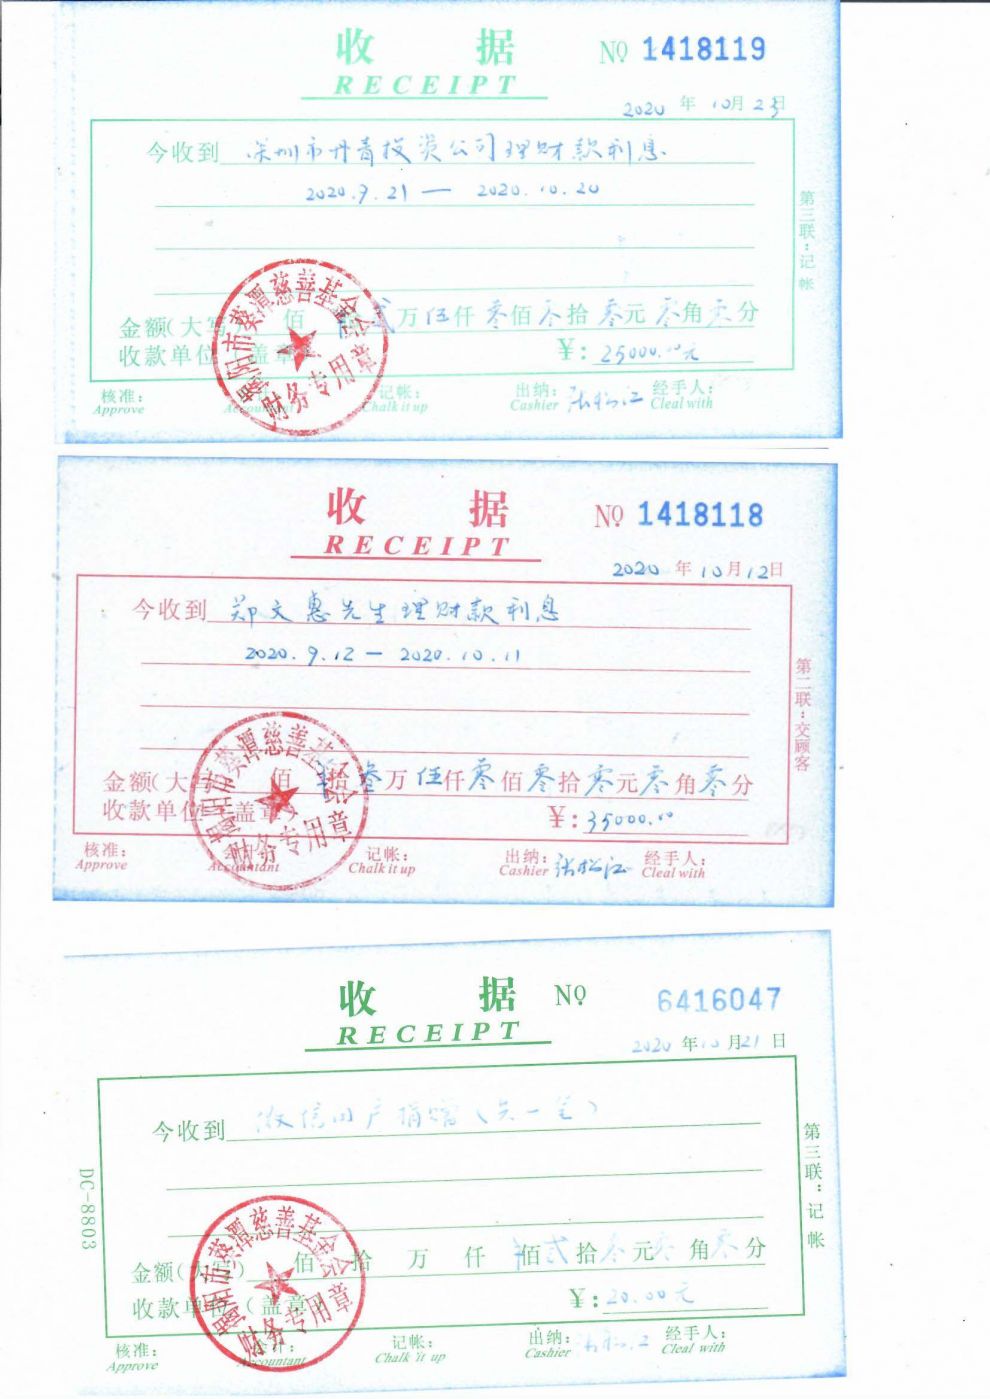 收 据 № 1418119
RECEIPT
2020 年 10月23日
今收到 深圳市丹青投资公司理财款利息
2020.9.21 — 2020.10.20
第三联:记帐
揭阳市葵潭慈善基金会
财务专用章
金额(大写) 佰 贰万伍仟零佰零拾零元零角零分
收款单位(盖章) ¥: 25000.00元
核准: 记帐: 出纳: 张松江 经手人:
Approve Accountant Chalk it up Cashier Cleal with
收 据 № 1418118
RECEIPT
2020 年 10月12日
今收到 郑文惠先生理财款利息
2020.9.12 — 2020.10.11
第二联:交顾客
揭阳市葵潭慈善基金会
财务专用章
金额(大写) 佰 拾叁万伍仟零佰零拾零元零角零分
收款单位(盖章) ¥: 35000.00
核准: 会计: 记帐: 出纳: 张松江 经手人:
Approve Accountant Chalk it up Cashier Cleal with
收 据 № 6416047
RECEIPT
2020 年 10月21日
今收到 微信用户捐赠(共一笔)
DC-8803
第三联:记帐
揭阳市葵潭慈善基金会
财务专用章
金额(大写) 佰 拾 万 仟 佰贰拾零元零角零分
收款单位(盖章) ¥: 20.00元
核准: 会计: 记帐: 出纳: 张松江 经手人:
Approve Accountant Chalk it up Cashier Cleal with